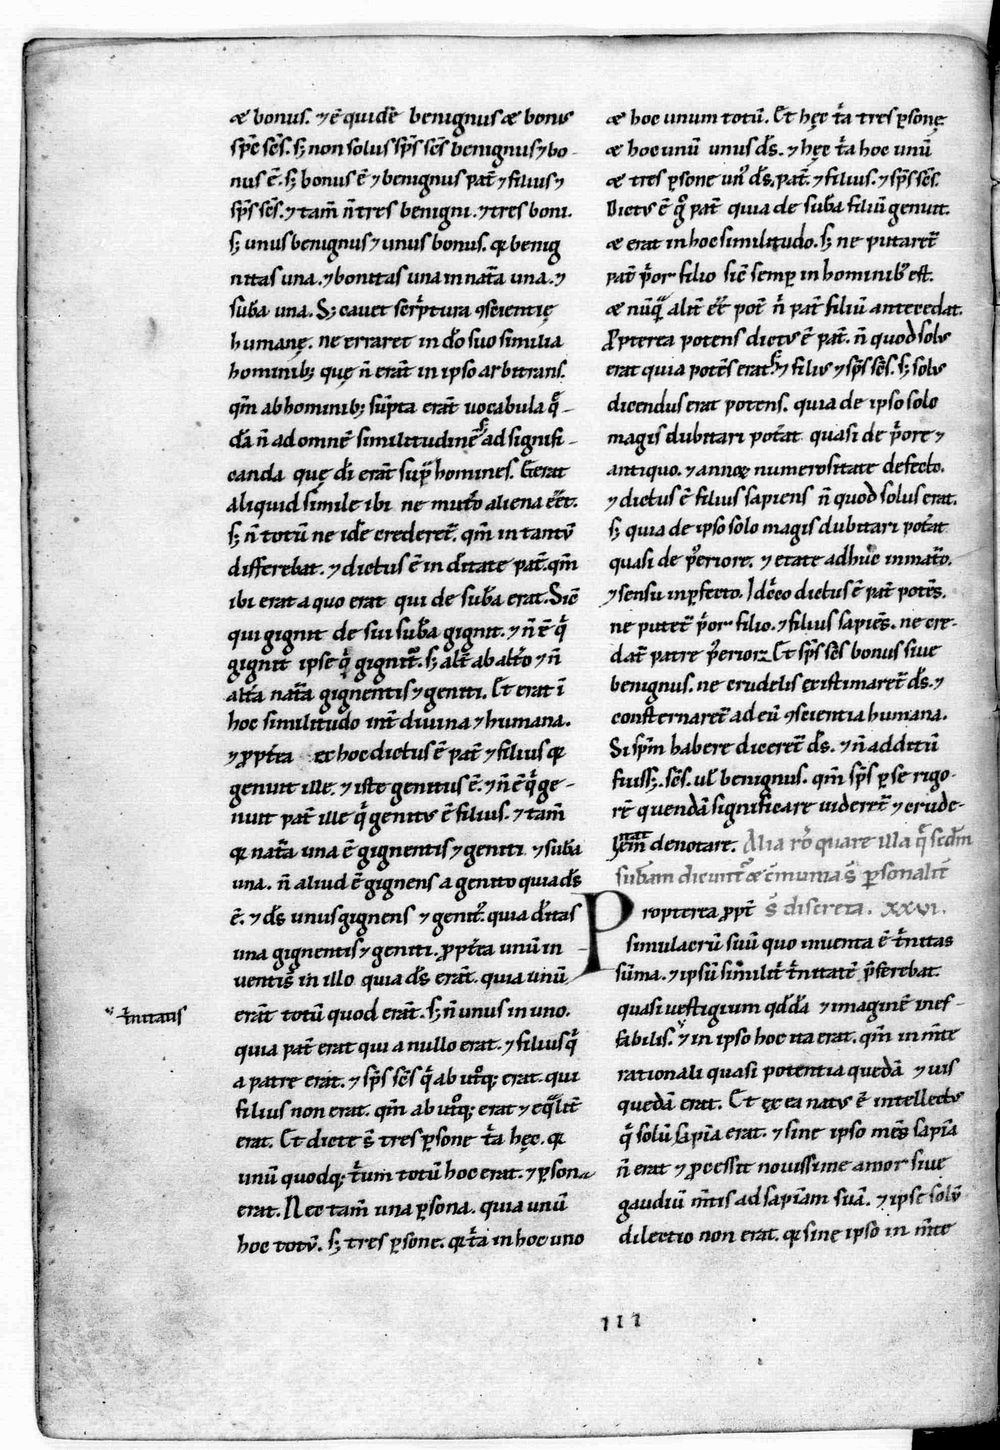 & bonus. ⁊ ē quidē benignus & bonꝰ
sp̄c sc̄s. sꝫ non solus sp̄s sc̄s benignus ⁊ bo-
nus ē. sꝫ bonus ē ⁊ benignus pat̄ ⁊ filius ⁊
sp̄s sc̄s. ⁊ tam̄ n̄ tres benigni. ⁊ tres boni.
sꝫ unus benignus ⁊ unus bonus. q̨ benig
nitas una. ⁊ bonitas una in nat̄a una. ⁊
subā una. Sꝫ cauet scr̄ptura ꝯscientię
humanę. ne erraret in dō suo similia
hominibꝫ quę n̄ erāt in ipso arbitrans.
qm̄ ab hominibꝫ sūpta erāt uocabula q̄-
dā n̄ ad omnē similitudinē sꝫ ad signifi-
canda quę dī erāt sup̄ homines. & erat
aliquid simile ibi ne mult̄o aliena eēt.
sꝫ n̄ totū ne idē crederet̄. qm̄ in tantū
differebat. ⁊ dictus ē in d̄itate pat̄. qm̄
ibi erat a quo erat qui de subā erat. Sic̄
qui gignit de sui subā gignit. ⁊ n̄ ē q̄
gignit ipse q̄ gignit᷑. sꝫ alt̄ ab alt̄o ⁊ n̄
alt̄a nat̄a gignentis ⁊ geniti. Et erat ī
hoc similitudo int̄ diuina ⁊ humana.
⁊ ꝓpt̄ea et hoc dictus ē pat̄ ⁊ filius q̨
genuit ille. ⁊ iste genitus ē. ⁊ n̄ ē q̄ ge-
nuit pat̄ ille q̄ genitꝰ ē filius. ⁊ tam̄
q̨ nat̄a una ē gignentis ⁊ geniti ⁊ subā
una. n̄ aliud ē gignens a genito quia ds̄
ē. ⁊ ds̄ unus gignens ⁊ genit᷑. quia d̄itas
una gignentis ⁊ geniti. ꝓpt̄ea unū in-
uentis̄ in illo quia ds̄ erāt. quia unū
erāt totū quod erāt. sꝫ n̄ unus in uno.
quia pat̄ erat qui a nullo erat. ⁊ filius q̄
a patre erat. ⁊ sp̄s sc̄s q̄ ab ut᷑qꝫ erat. qui
filius non erat. qm̄ ab ut᷑qꝫ erat ⁊ eq̄lit̄
erat. Et dicte s̄ tres ꝑsone t̄a hęc. q̨
unū quodqꝫ t̄ium totū hoc erat. ⁊ ꝑsona
erat. Nec tam̄ una ꝑsona. quia unū
hoc totū. sꝫ tres ꝑsone. q̨ t̄a in hoc uno
t̄initatis
& hoc unum totū. Et hęc t̄a tres ꝑsonę
& hoc unū unus ds̄. ⁊ hęc t̄a hoc unū
& tres ꝑsone unꝰ ds̄. pat̄. ⁊ filius. ⁊ sp̄s sc̄s.
Dictꝰ ē g̊ pat̄ quia de subā filiū genuit.
& erat in hoc similitudo. sꝫ ne putaret̄
pat̄ p̄or filio sic̄ semꝑ in hominibꝰ est.
& nūq̄ alit̄ eē pot̄ n̄ pat̄ filiū antecedat.
Ꝓpterea potens dictꝰ ē pat̄. n̄ quod solꝰ
erat quia potēs erat sꝫ ⁊ filiꝰ ⁊ sp̄s sc̄s. sꝫ solꝰ
dicendus erat potens. quia de ipso solo
magis dubitari pot̄at quasi de p̄ore ⁊
antiquo. ⁊ annoꝝ numerositate defecto.
⁊ dictus ē filius sapiens n̄ quod solus erat.
sꝫ quia de ipso solo magis dubitari pot̄at
quasi de p̄eriore. ⁊ etate adhuc inmat̄o.
⁊ sensu inꝑfecto. Id̄co dictus ē pat̄ potēs.
ne putet̄ p̄or filio. ⁊ filius sapiēs. ne cre-
dat̄ patre p̄erior. Et sp̄s sc̄s bonus siue
benignus. ne crudelis existimaret̄ ds̄. ⁊
consternaret̄ ad eū ꝯscientia humana.
Si sp̄m habere diceret̄ ds̄. ⁊ n̄ additū
fuissꝫ. sc̄s. ul̄ benignus. qm̄ sp̄s ꝑ se rigo-
rē quendā significare uideret̄ ⁊ crude-
litatem̄ denotare. Alia rō quare illa q̄ scdm̄
subam dicunt᷑ & cīmunia s̄ ꝑsonalit̄
Propterea ꝓpt̄ s̄ discreta. XXVI.
simulacrū suū quo inuenta ē t̄initas
sūma. ⁊ ipsū similit̄ t̄initatē p̄ferebat.
quasi uestigium qd̄dā ⁊ imaginē inef-
fabilis. ⁊ in ipso hoc ita erat. qm̄ in m̄te
rationali quasi potentia quedā ⁊ uis
quedā erat. Et ex ea natꝰ ē intellectꝰ
q̄ solū sapīa erat. ⁊ sine ipso mēs sapīa
n̄ erat ⁊ ꝓcessit nouissime amor siue
gaudiū m̄tis ad sapīam suā. ⁊ ipse solū
dilectio non erat. q̨ sine ipso in m̄te
III